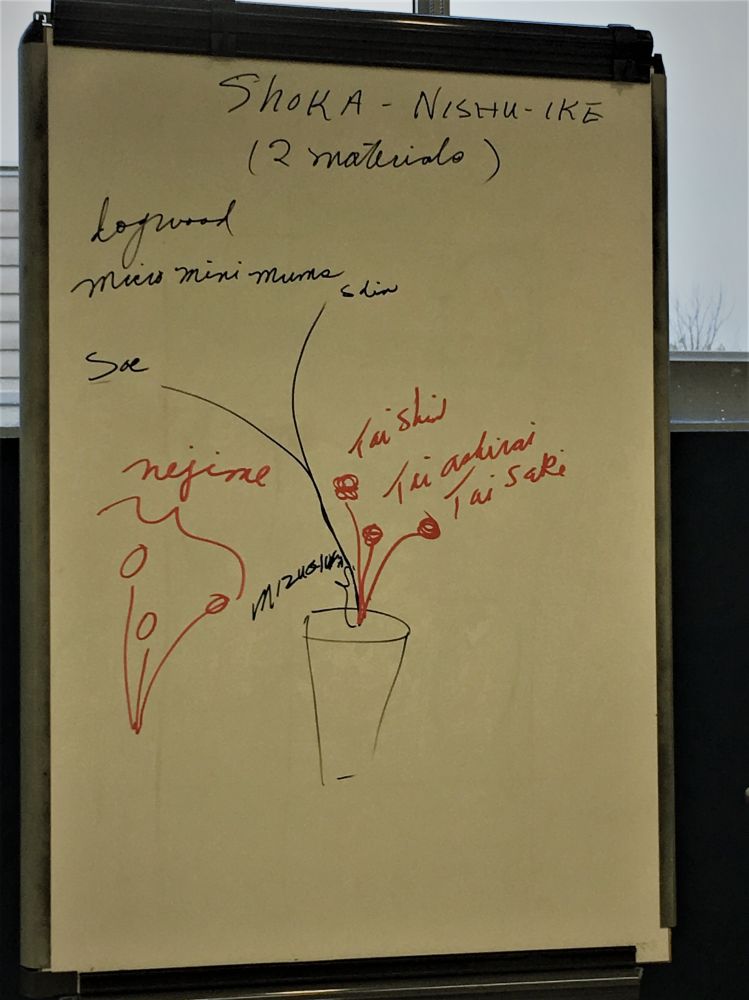 SHOKA - NISHU-IKE
(2 materials)
dogwood
micro mini mums
shin
Soe
Tai Shin
Tai ashirai
Tai Saki
nejime
MIZUGIWA